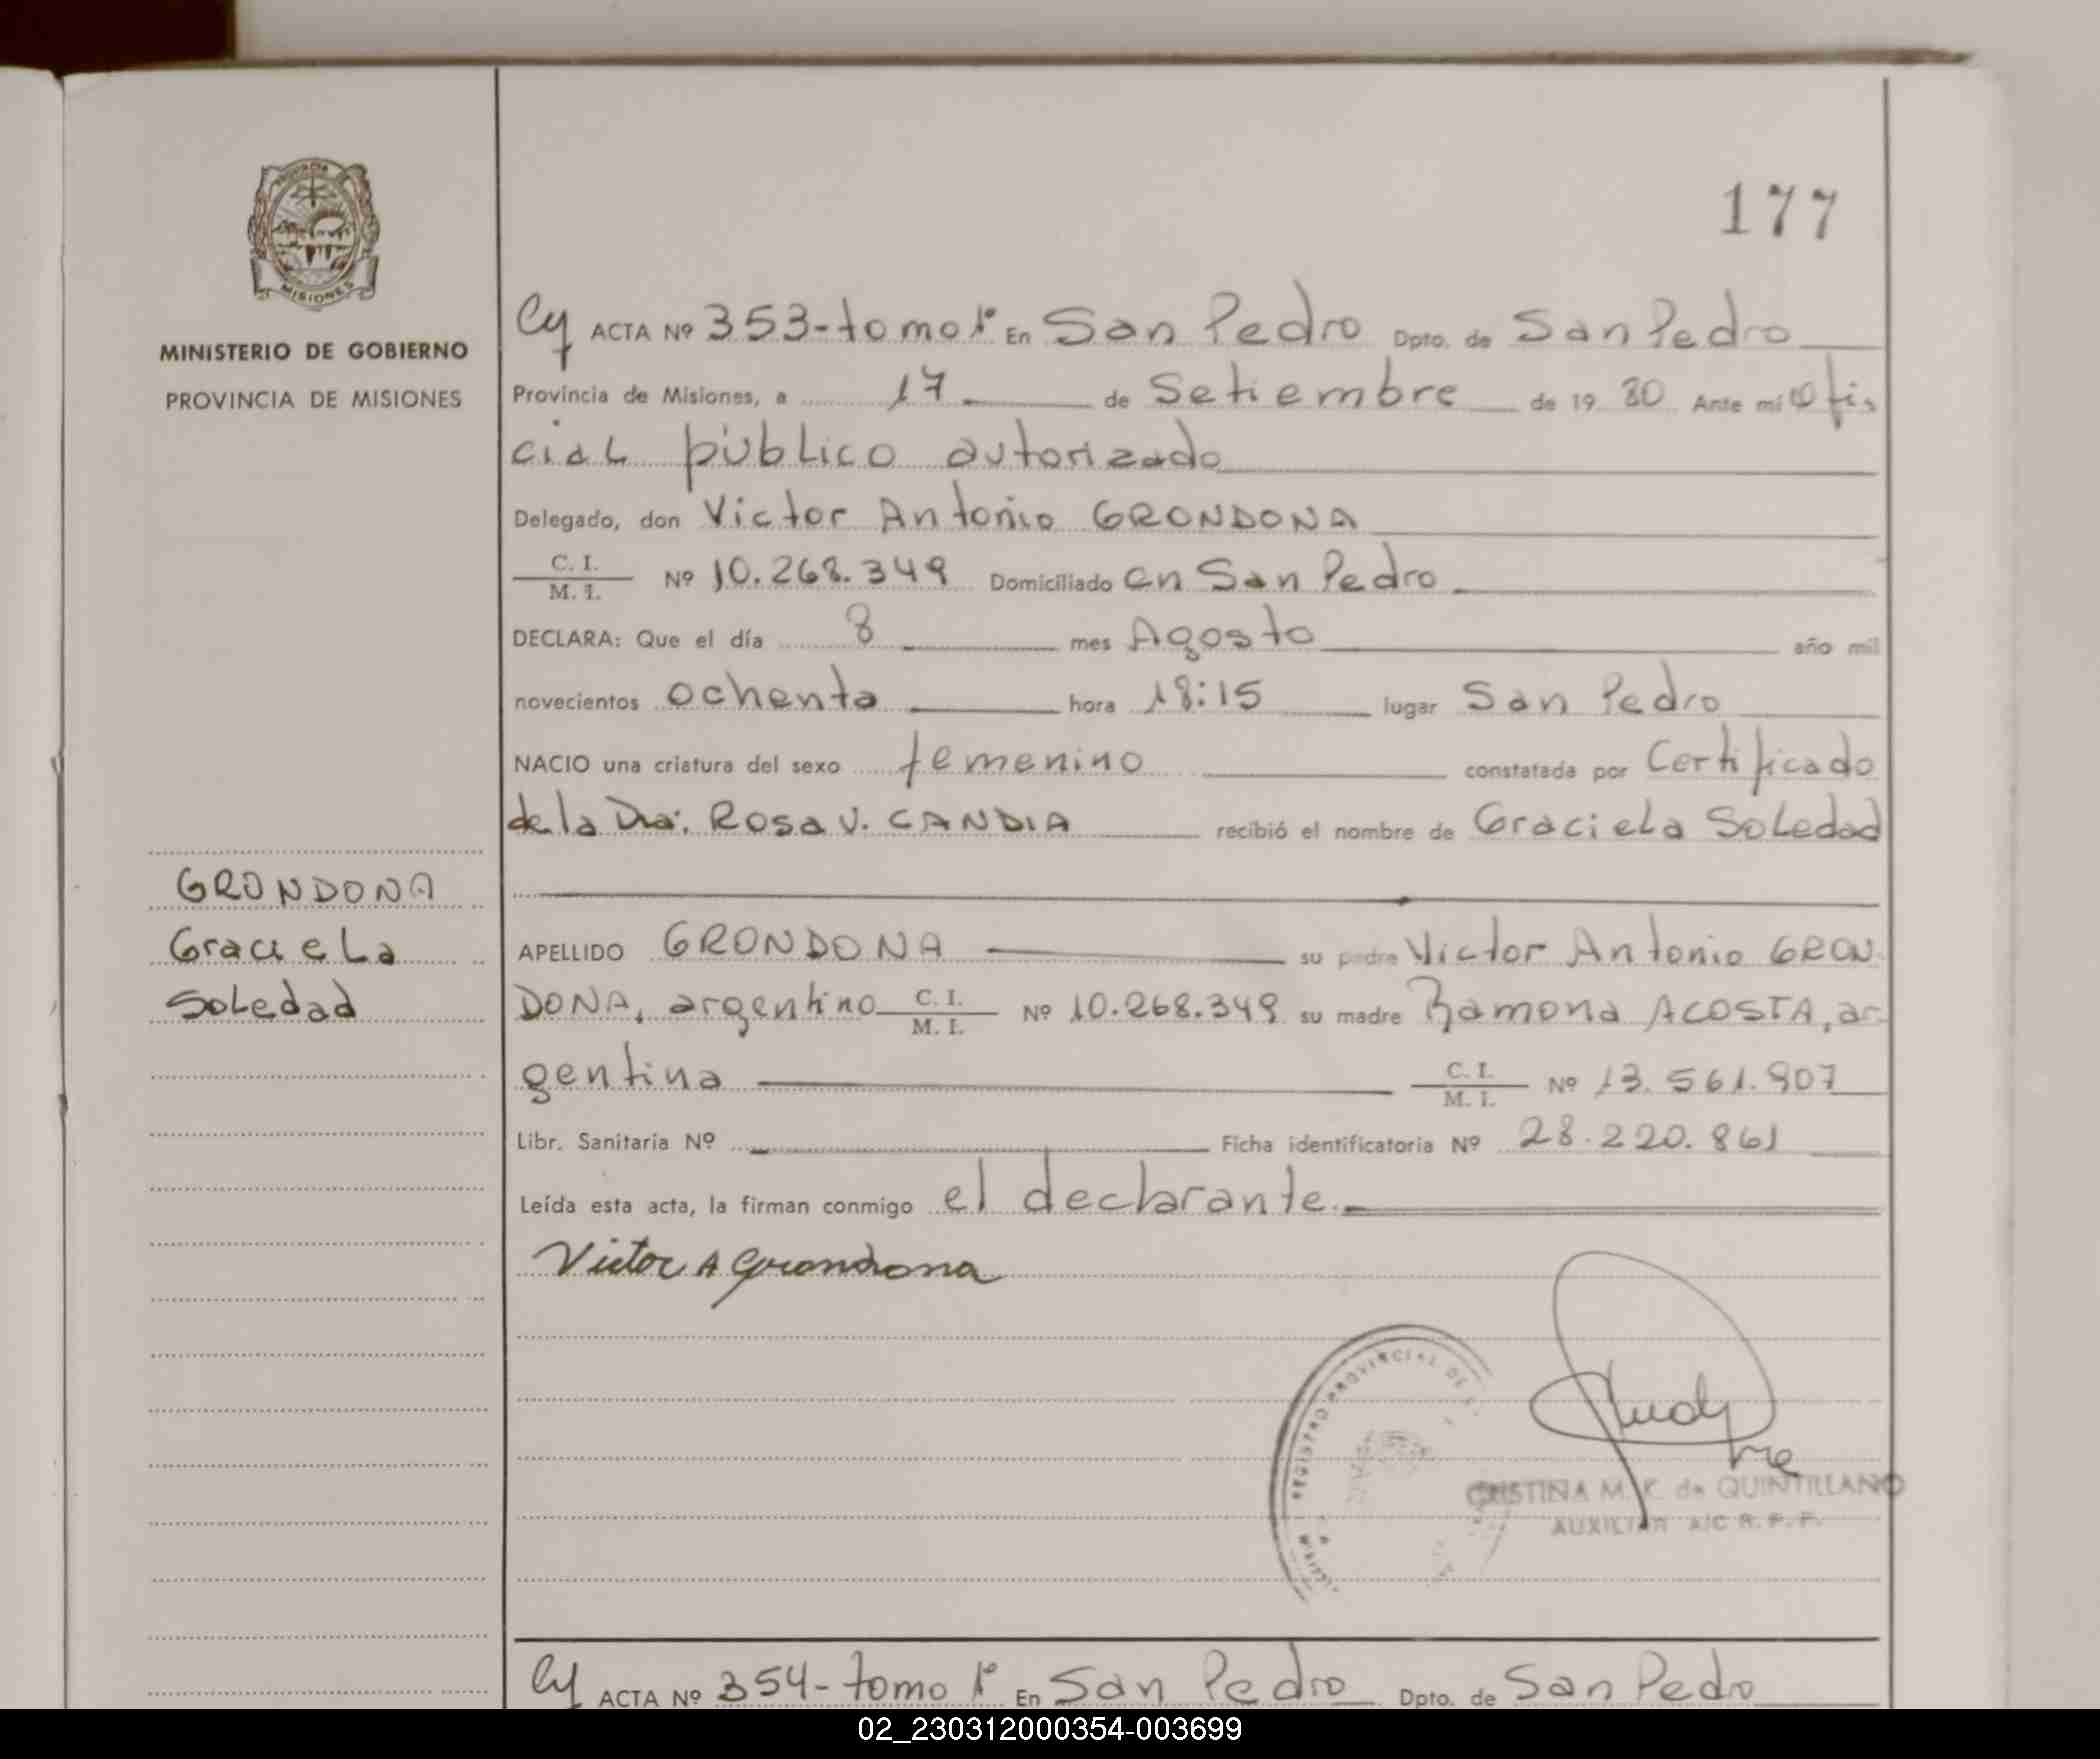 177
PROVINCIA DE
MISIONES
MINISTERIO DE GOBIERNO
PROVINCIA DE MISIONES
Cy ACTA Nº 353-tomo 1º En San Pedro Dpto. de San Pedro
Provincia de Misiones, a 17 de Setiembre de 19 80 Ante mi Ofi
cial público autorizado
Delegado, don Victor Antonio GRONDONA
C. I.
M. I. Nº 10.268.349 Domiciliado en San Pedro
DECLARA: Que el día 8 mes Agosto año mil
novecientos ochenta hora 18:15 lugar San Pedro
NACIO una criatura del sexo femenino constatada por Certificado
de la Dra. Rosa V. CANDIA recibió el nombre de Graciela Soledad
GRONDONA
Graciela
Soledad
APELLIDO GRONDONA su padre Victor Antonio GRON
DONA, argentino C. I.
M. I. Nº 10.268.349 su madre Ramona ACOSTA, ar
gentina C. I.
M. I. Nº 13.561.907
Libr. Sanitaria Nº Ficha identificatoria Nº 28.220.861
Leída esta acta, la firman conmigo el declarante.
Victor A Grondona
REGISTRO PROVINCIAL DE
CRISTINA M. K. de QUINTILLANO
AUXILIAR A/C R. P. P.
Cy ACTA Nº 354-tomo 1º En San Pedro Dpto. de San Pedro
02_230312000354-003699